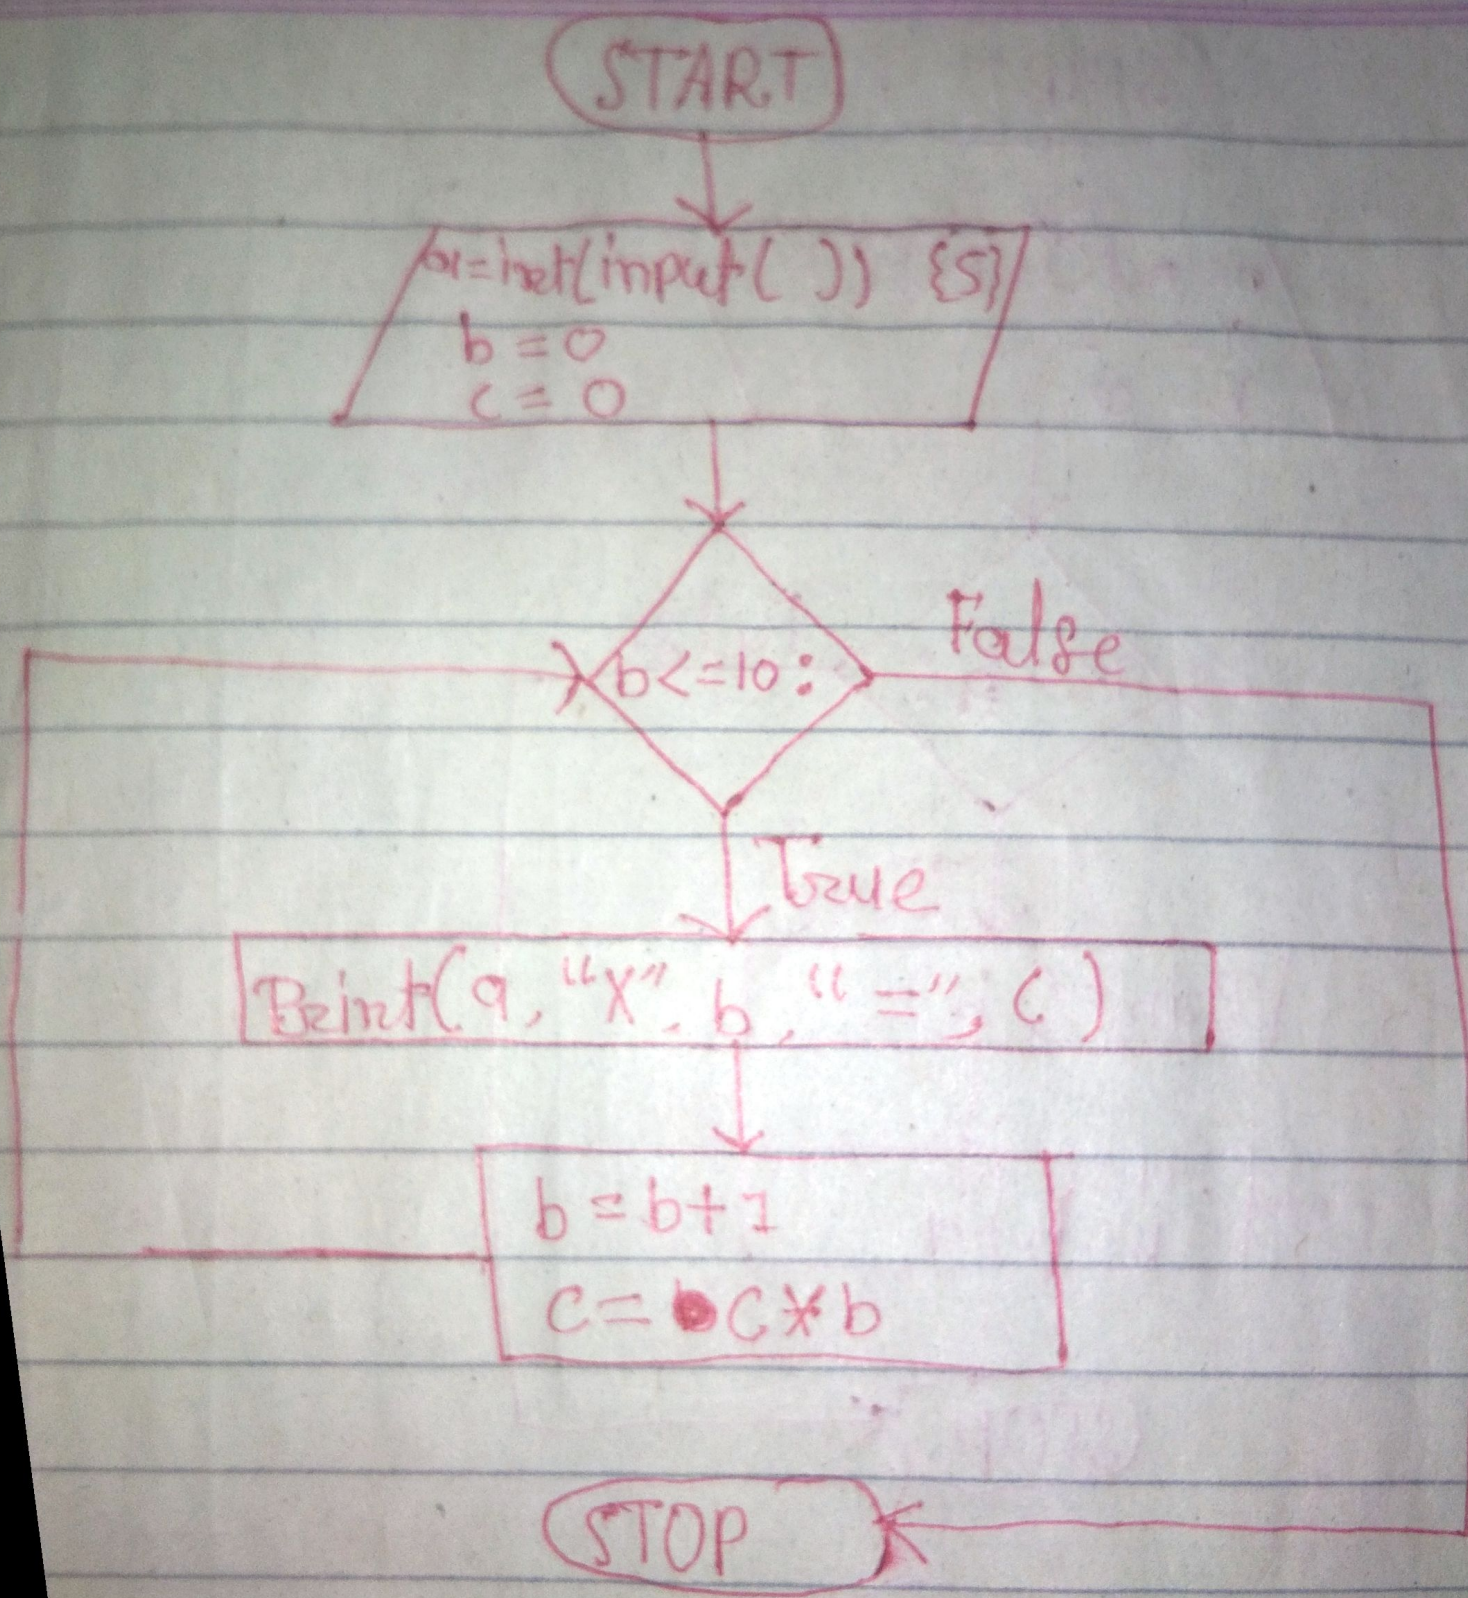 START
a=int(input( )) {5}
b = 0
c = 0
b<=10:
False
True
Print(a, "X", b, "=", c)
b = b+1
c = c*b
STOP